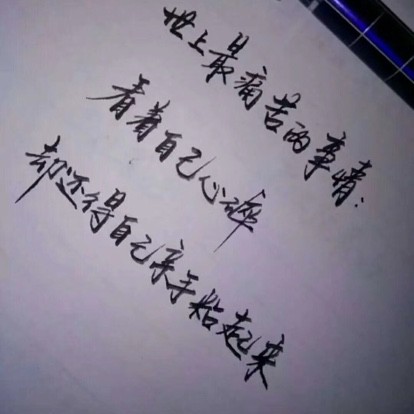 世上最痛苦的事情:
看着自己心碎
却还得自己亲手粘起来